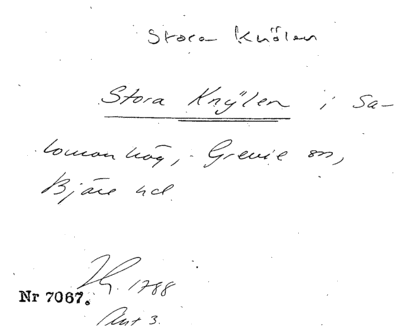 Stora Knölen
Stora Knÿlen i Sa-
lomonhög, Grevie sn,
Bjäre hd.
1788
Nr 7067.
Ant 3.